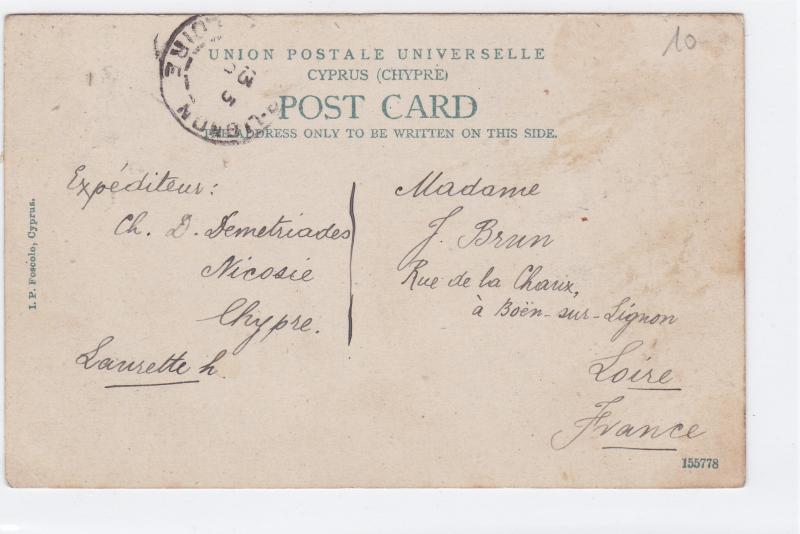 10
UNION POSTALE UNIVERSELLE
CYPRUS (CHYPRE)
POST CARD
THE ADDRESS ONLY TO BE WRITTEN ON THIS SIDE.
LOIRE
13
5
LIGNON
I. P. Foscolo, Cyprus.
Expéditeur:
Ch. D. Demetriades
Nicosie
Chypre.
Laurette h.
Madame
J. Brun
Rue de la Chaux,
à Boën-sur-Lignon
Loire
France
155778